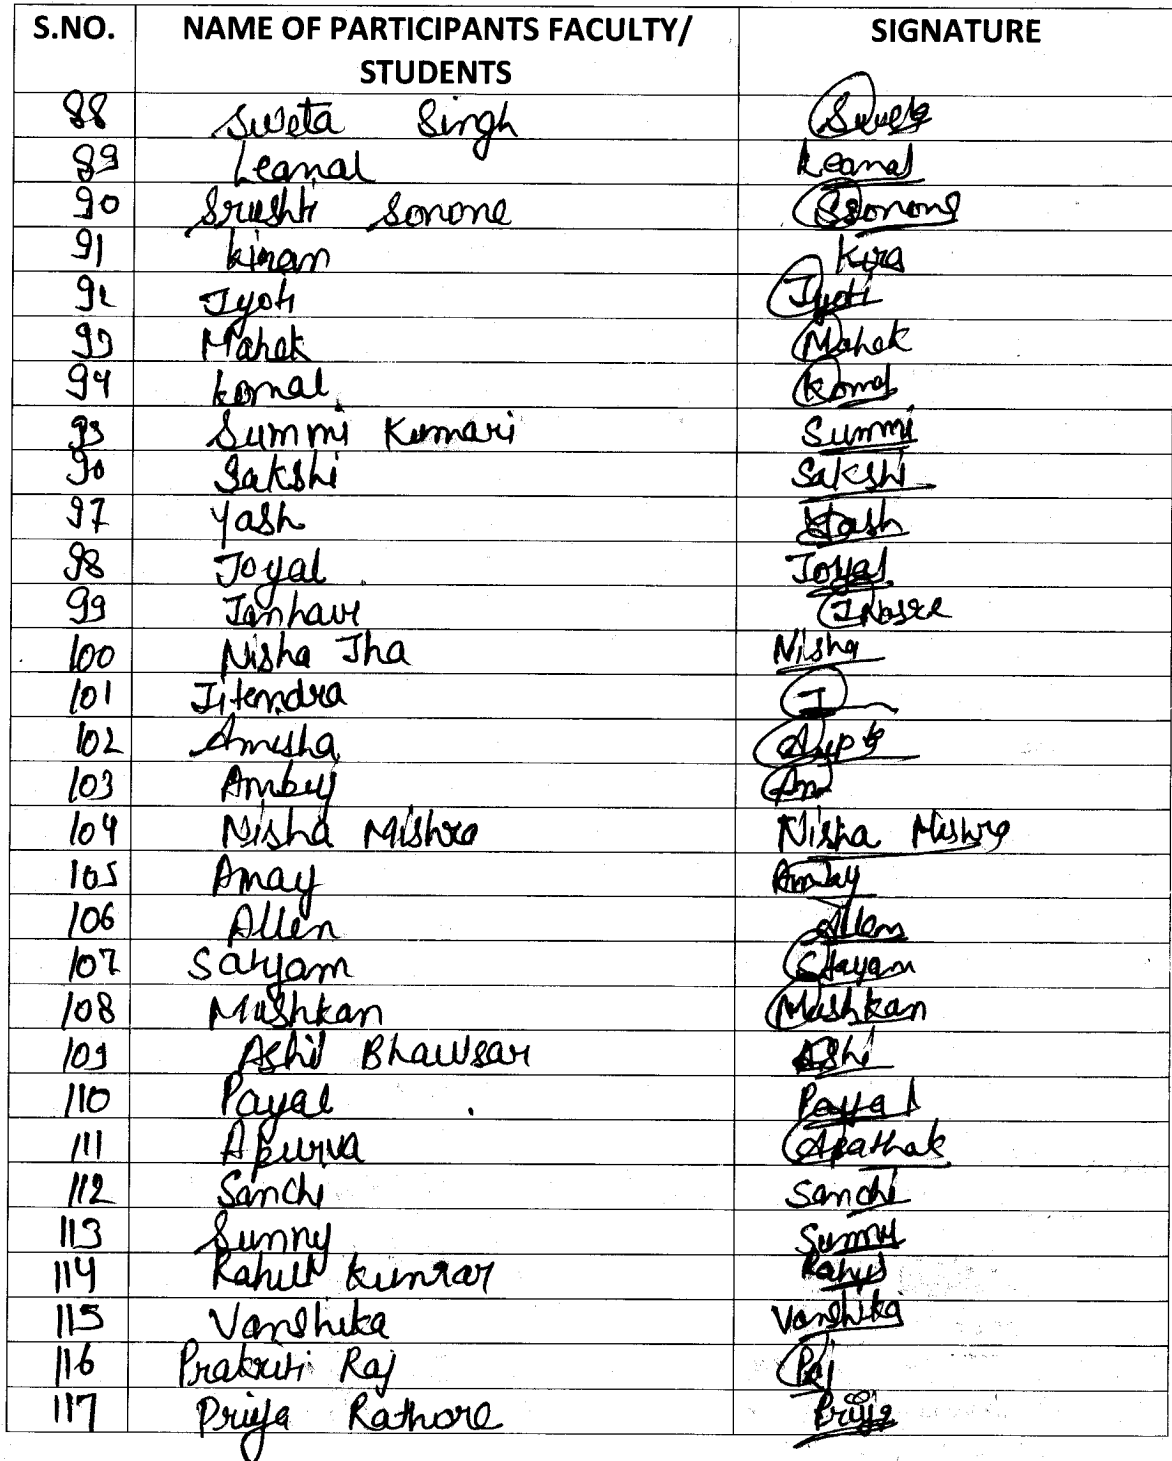 S.NO. NAME OF PARTICIPANTS FACULTY/ SIGNATURE
STUDENTS
88 Sweta Singh Sweta
89 Leanal Leanal
90 Srushti Sonone SSonone
91 kiran Kira
92 Jyoti Jyoti
93 Mahek Mahek
94 komal Komal
95 Summi Kumari Summi
96 Sakshi Sakshi
97 Yash Yash
98 Joyal Joyal
99 Janhavi
100 Nisha Jha Nisha
101 Jitendra J
102 Amisha
103 Ambuj Am
104 Nisha Mishra Nisha Mishra
105 Amay Amay
106 Allen Allen
107 Satyam Stayam
108 Mushkan Mushkan
109 Ashi Bhawsar Ashi
110 Payal Payal
111 Apurva Apathak
112 Sanchi Sanchi
113 Sunny Sunny
114 Rahul kumrar Rahul
115 Vanshika Vanshika
116 Prakriti Raj
117 Priya Rathore Priya